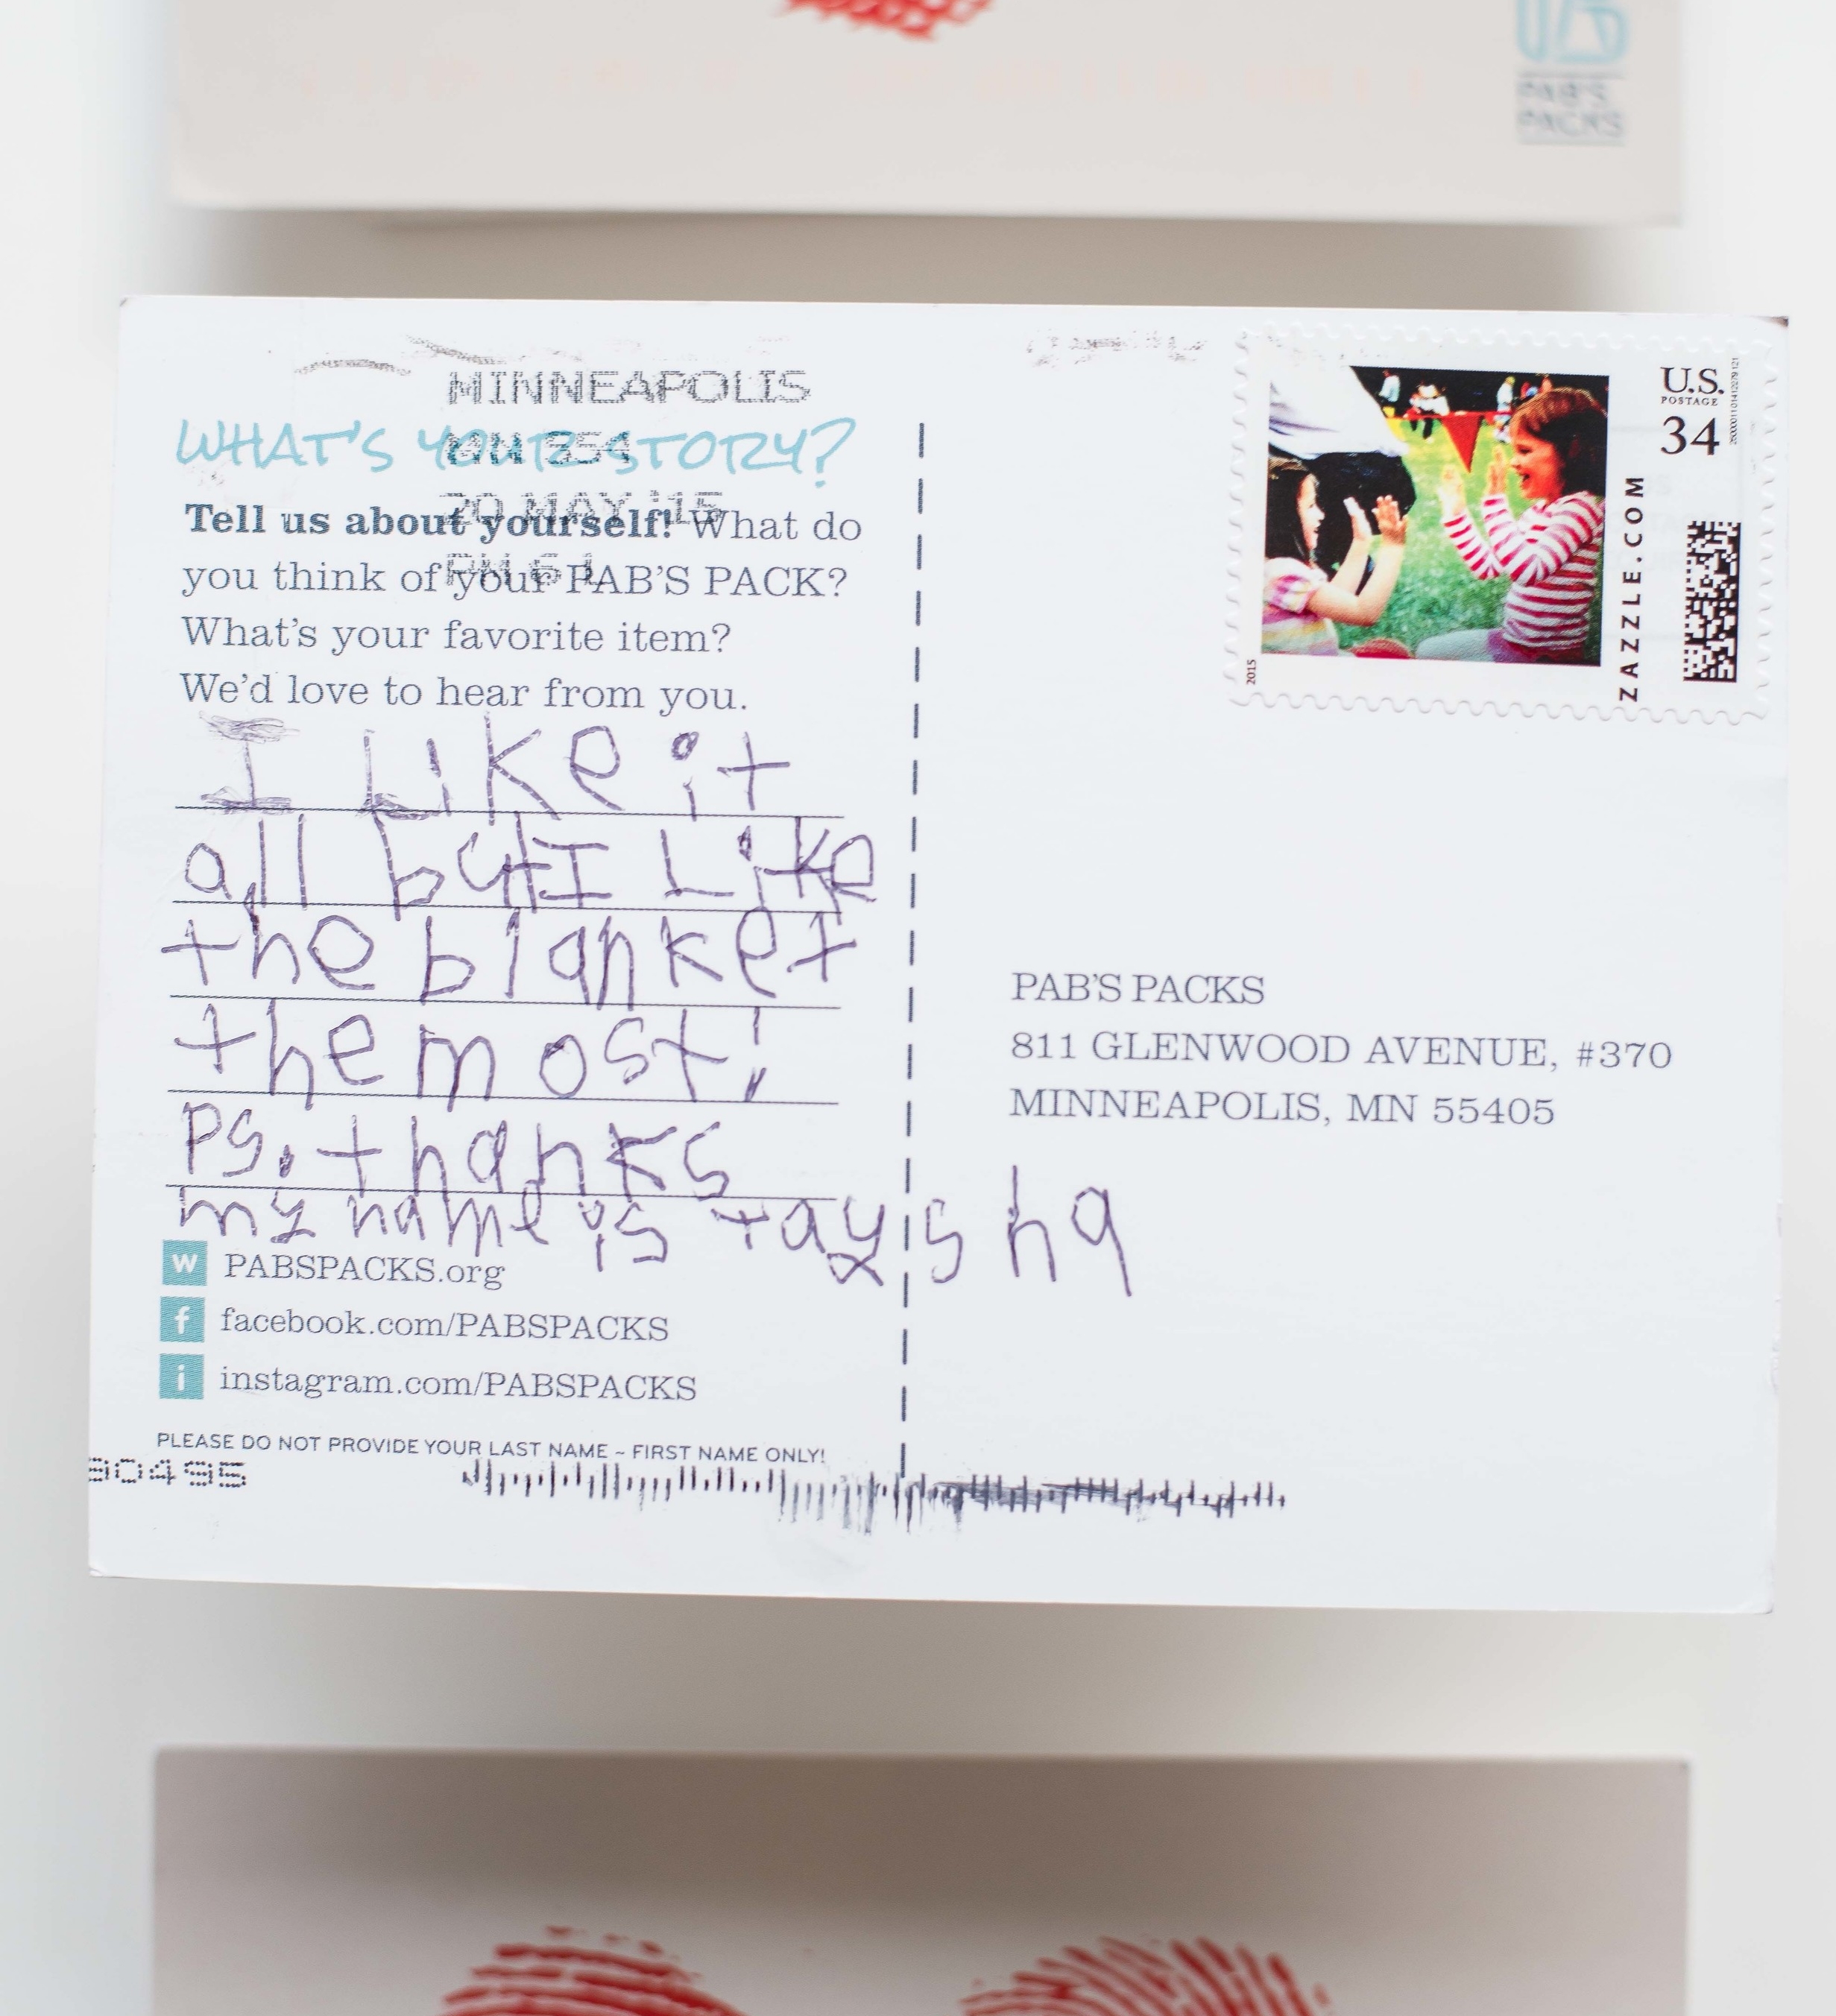 PAB'S
PACKS
MINNEAPOLIS
MN 554
20 MAY '15
PM 6 L
WHAT'S YOUR STORY?
Tell us about yourself! What do
you think of your PAB'S PACK?
What's your favorite item?
We'd love to hear from you.
I Like it
all but I Like
the blanket
the most!
Ps. thanks
my name is taysha
W PABSPACKS.org
f facebook.com/PABSPACKS
i instagram.com/PABSPACKS
PLEASE DO NOT PROVIDE YOUR LAST NAME ~ FIRST NAME ONLY!
90495
U.S.
POSTAGE
34
ZAZZLE.COM
2015
PAB'S PACKS
811 GLENWOOD AVENUE, #370
MINNEAPOLIS, MN 55405